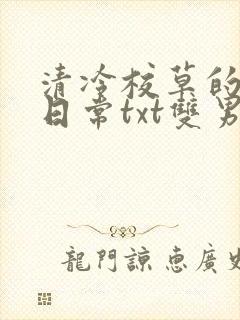 清冷校草的
日常txt雙男
龍門諒惠廣